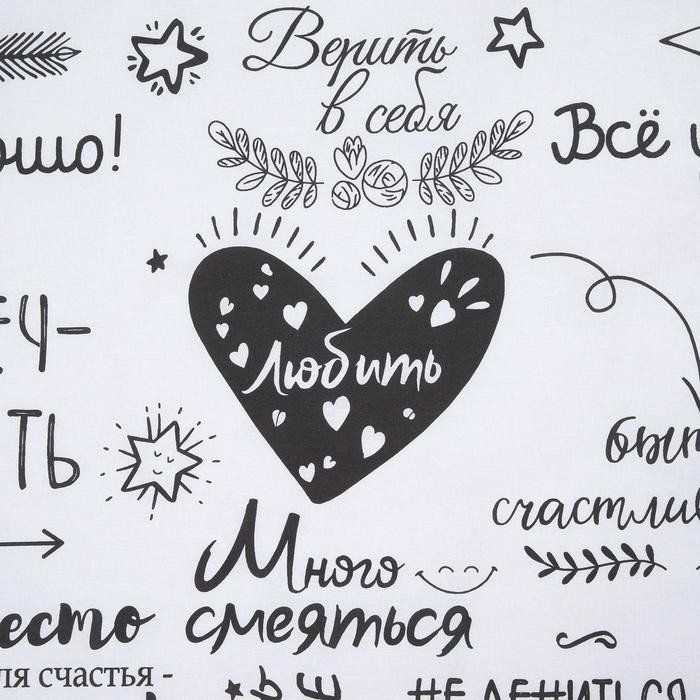 Верить
в себя
ошо!
Всё у
ЕЧ-
ТЬ
Любить
быт
счастлив
Много
смеяться
есто
ля счастья -
#НЕ ЛЕНИТЬСЯ